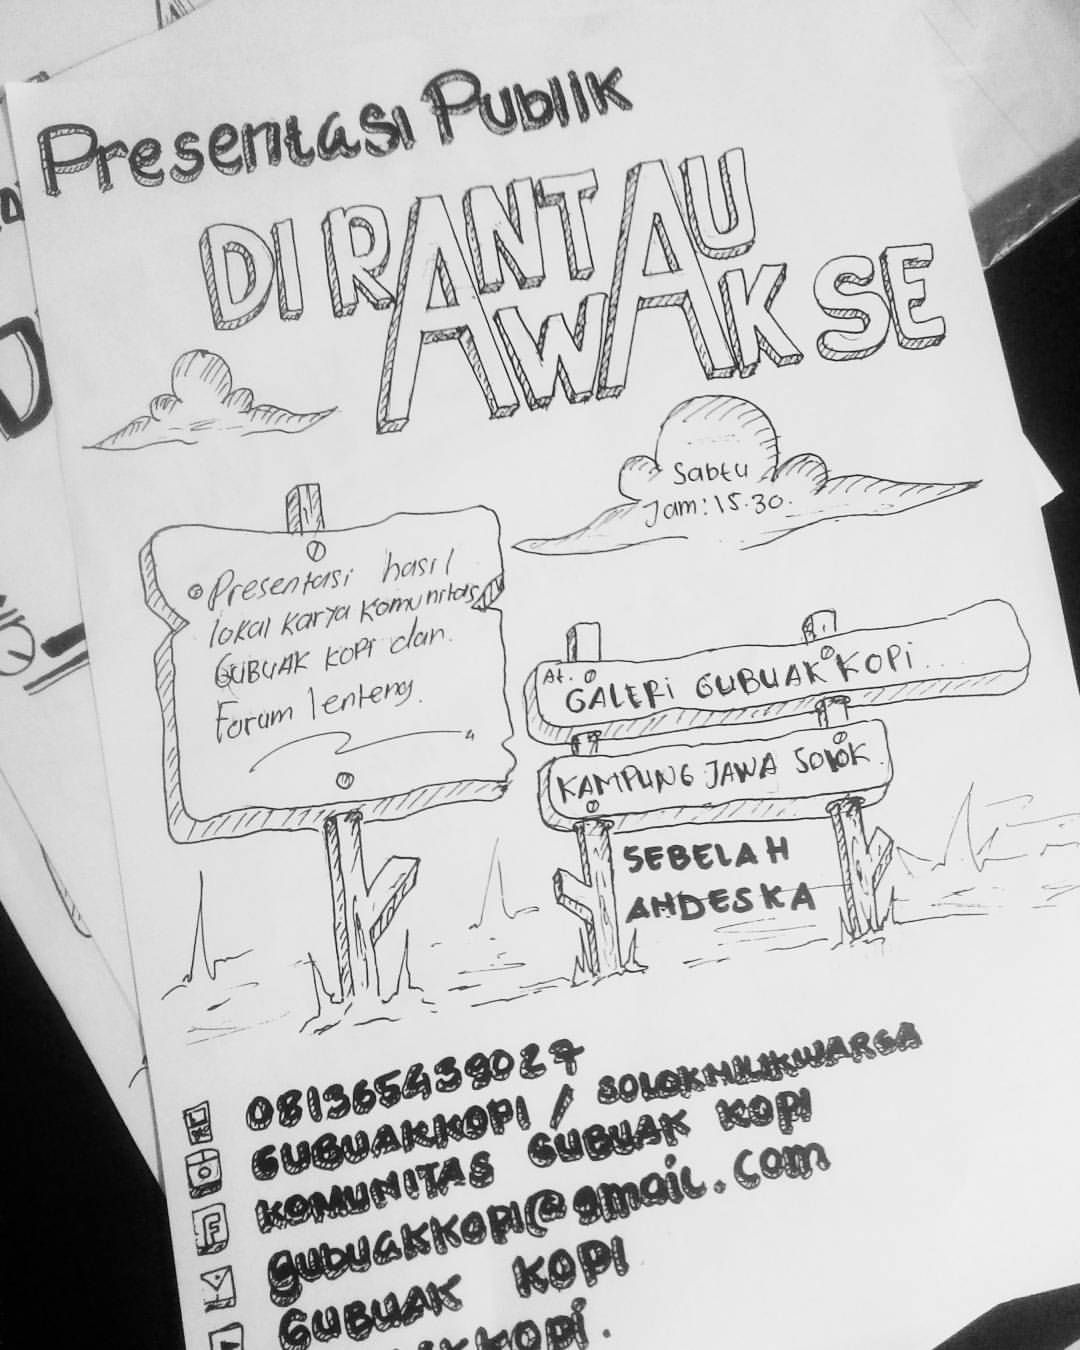 Presentasi Publik
DI RANTAU
AWAK SE
Sabtu
Jam: 15.30.
Presentasi hasil
lokal karya komunitas
GUBUAK KOPI dan.
Forum lenteng.
At. GALERI GUBUAK KOPI....
KAMPUNG JAWA SOLOK.
SEBELAH
ANDESKA
081365439027
GUBUAKKOPI / SOLOKMILIKWARGA
KOMUNITAS GUBUAK KOPI
gubuakkopi@gmail.com
GUBUAK KOPI